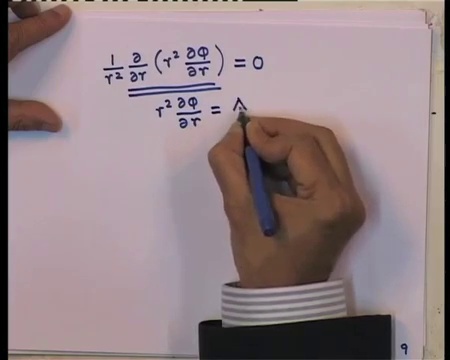 1/r² ∂/∂r (r² ∂Φ/∂r) = 0
r² ∂Φ/∂r =
9